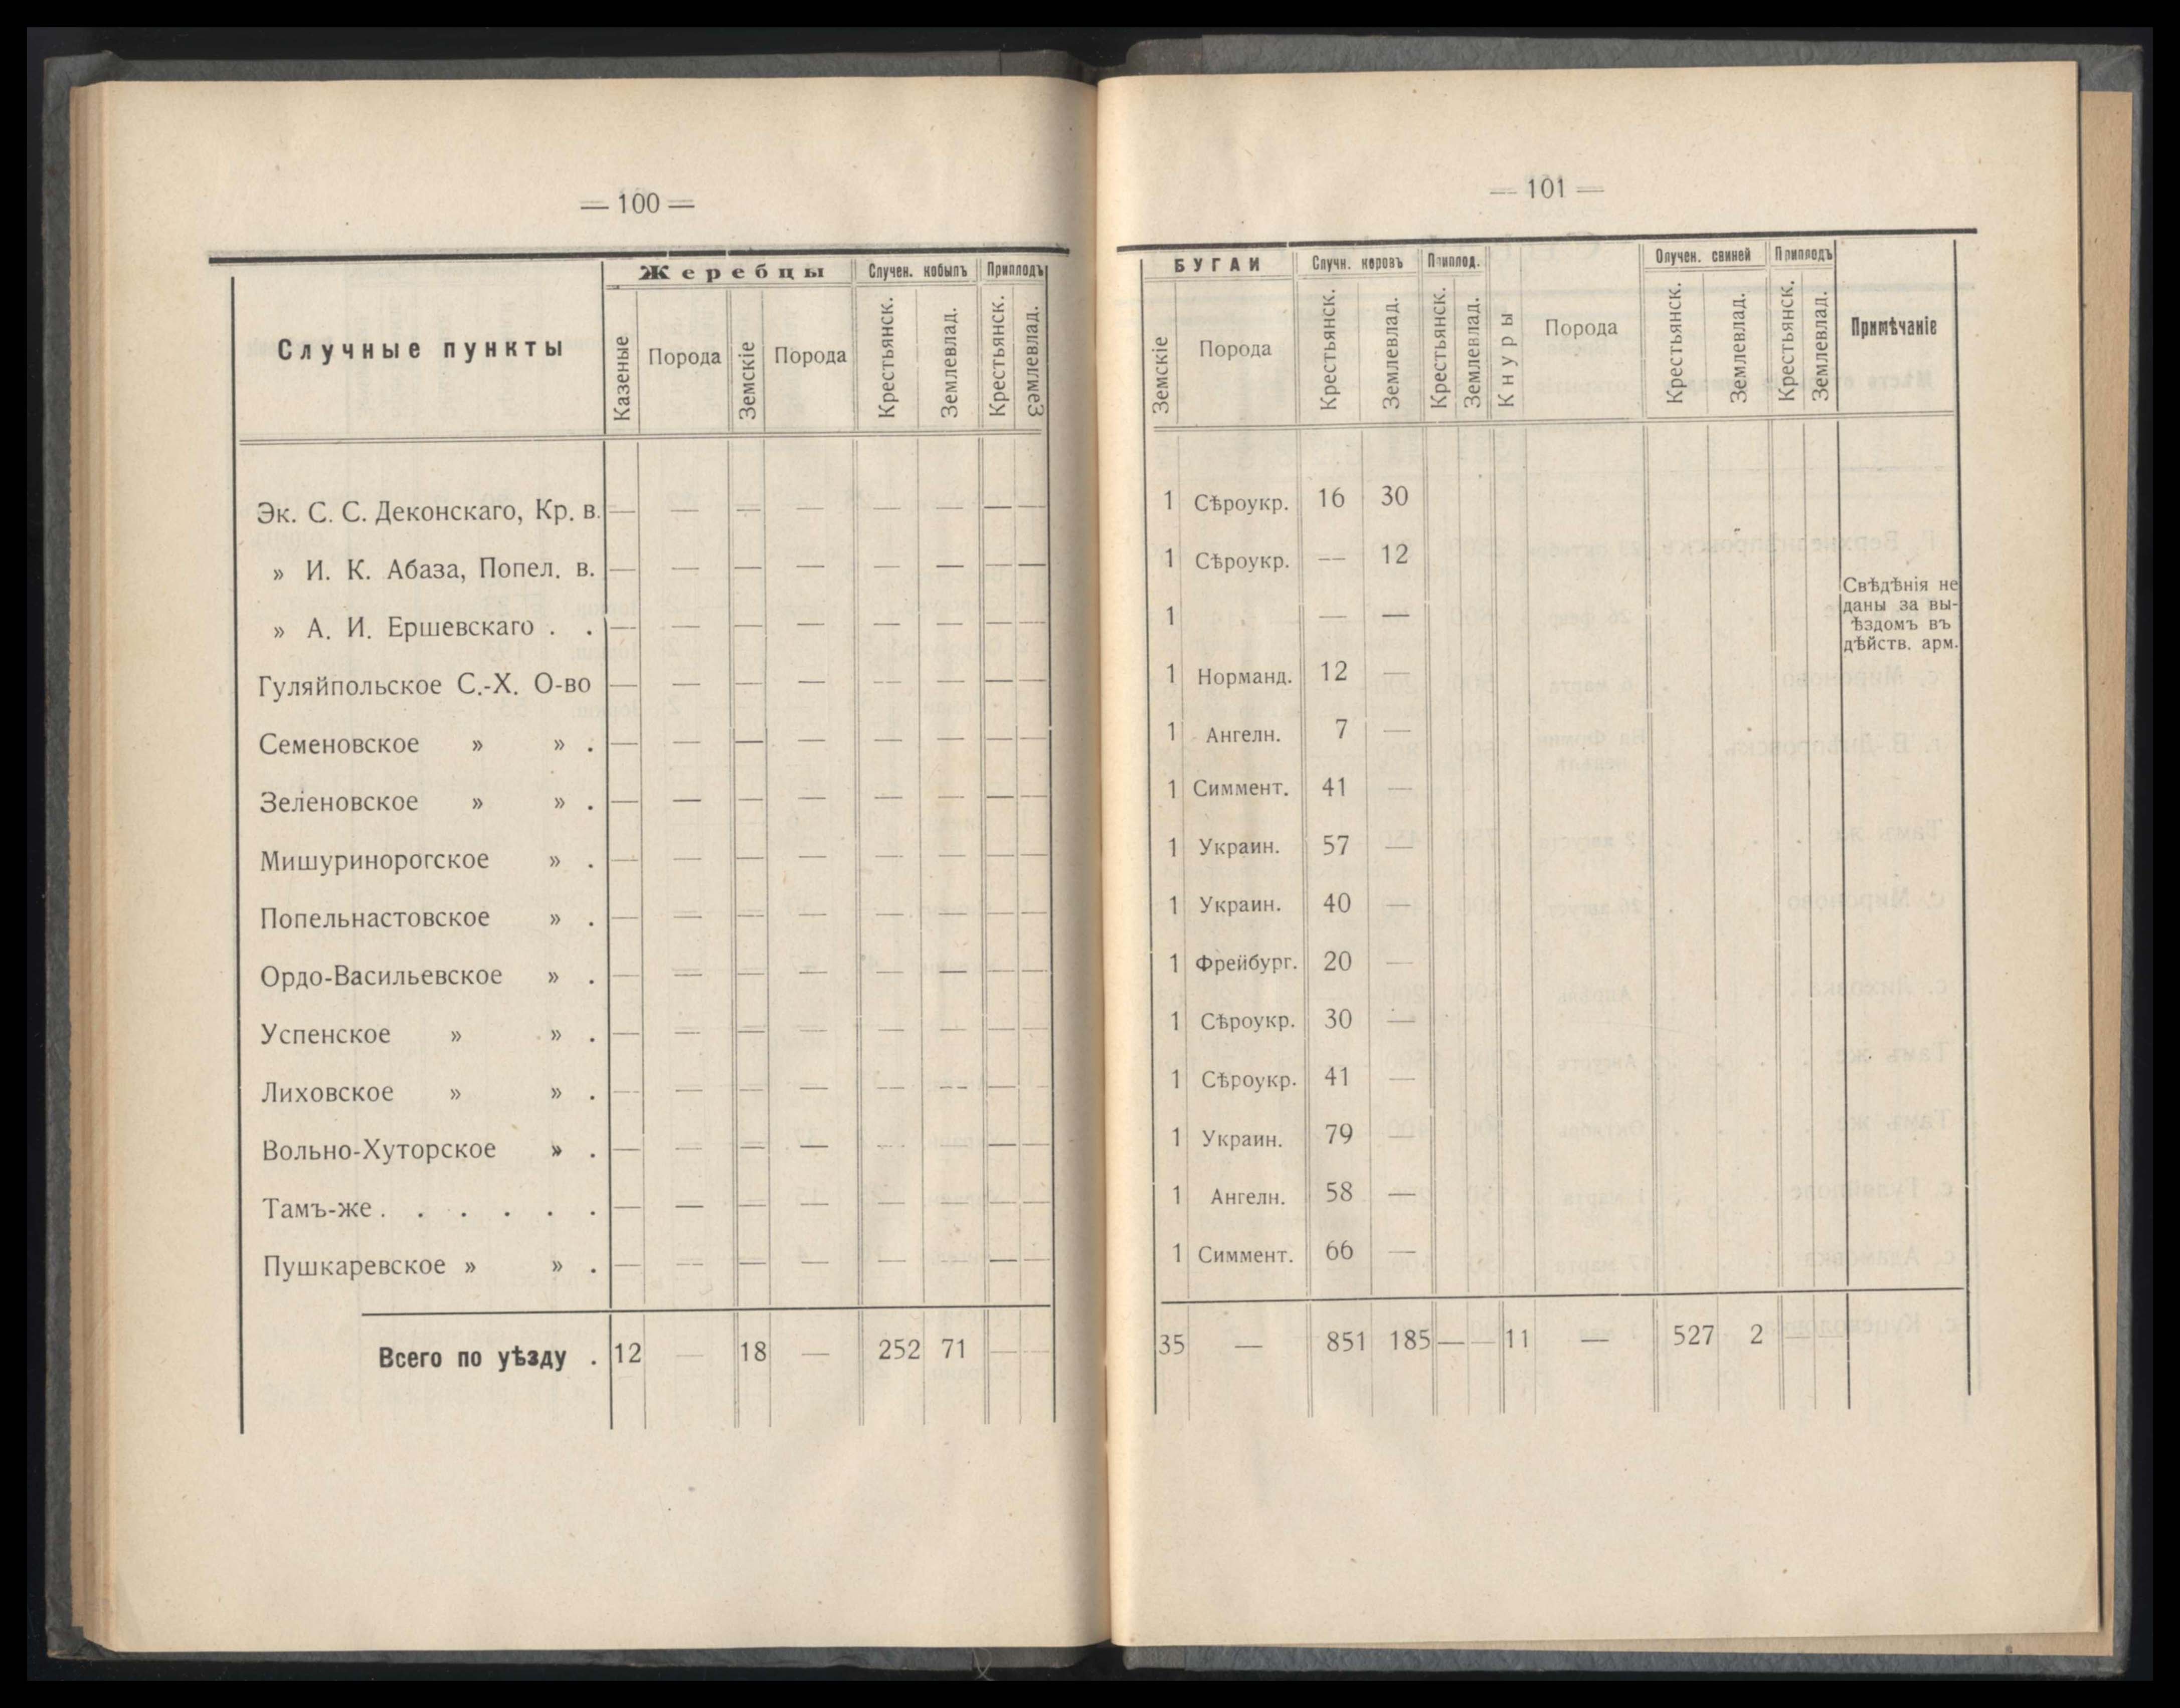 — 100 —
Случные пункты
Жеребцы
Случен. кобылъ
Приплодъ
Казеные
Порода
Земскіе
Порода
Крестьянск.
Землевлад.
Крестьянск.
Землевлад.
Эк. С. С. Деконскаго, Кр. в. — — — — — — — —
» И. К. Абаза, Попел. в. — — — — — — — —
» А. И. Ершевскаго . . — — — — — — — —
Гуляйпольское С.-Х. О-во — — — — — — — —
Семеновское » » . — — — — — — — —
Зеленовское » » . — — — — — — — —
Мишуринорогское » . — — — — — — — —
Попельнастовское » . — — — — — — — —
Ордо-Васильевское » . — — — — — — — —
Успенское » » . — — — — — — — —
Лиховское » » . — — — — — — — —
Вольно-Хуторское » . — — — — — — — —
Тамъ-же . . . . . . — — — — — — — —
Пушкаревское » » . — — — — — — — —
Всего по уѣзду . 12 — 18 — 252 71 — —
— 101 —
БУГАИ
Случн. коровъ
Приплод.
Случен. свиней
Приплодъ
Земскіе
Порода
Крестьянск.
Землевлад.
Крестьянск.
Землевлад.
Кнуры
Порода
Крестьянск.
Землевлад.
Крестьянск.
Землевлад.
Примѣчаніе
1 Сѣроукр. 16 30
1 Сѣроукр. — 12
1 — —
Свѣдѣнія не
даны за вы-
ѣздомъ въ
дѣйств. арм.
1 Норманд. 12 —
1 Ангелн. 7 —
1 Симмент. 41 —
1 Украин. 57 —
1 Украин. 40 —
1 Фрейбург. 20 —
1 Сѣроукр. 30 —
1 Сѣроукр. 41 —
1 Украин. 79 —
1 Ангелн. 58 —
1 Симмент. 66 —
35 — 851 185 — — 11 — 527 2 — —